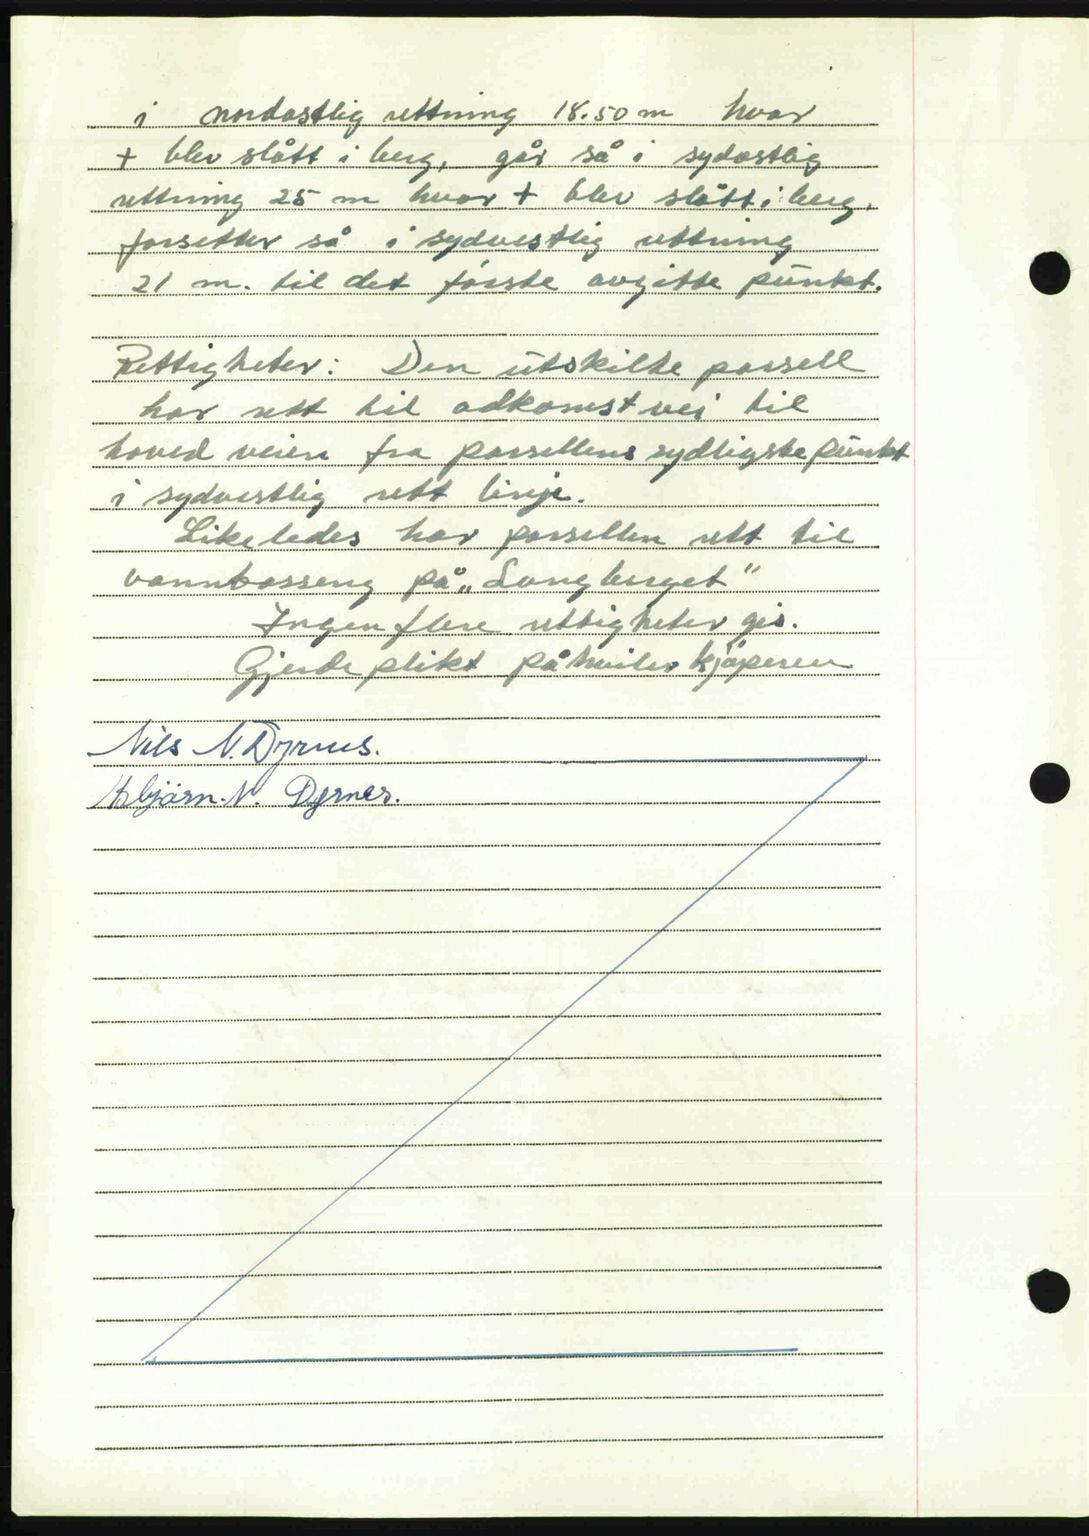 i nordostlig rettning 18.50 m hvor
+ blev slått i berg, går så i sydostlig
rettning 25 m hvor + blev slått i berg,
forsetter så i sydvestlig rettning
21 m. til det förste avgitte punkt.
Rettigheter: Den utskilte parsell
har rett til adkomst vei til
hoved veien fra parsellens sydligste punkt
i sydvestlig rett linje.
Likeledes har parsellen rett til
vannbasseng på „Langberget"
Ingen flere rettigheter gis.
Gjerde plikt påhviler kjöperen
Nils N. Dyrnes.
Asbjörn. N. Dyrnes.